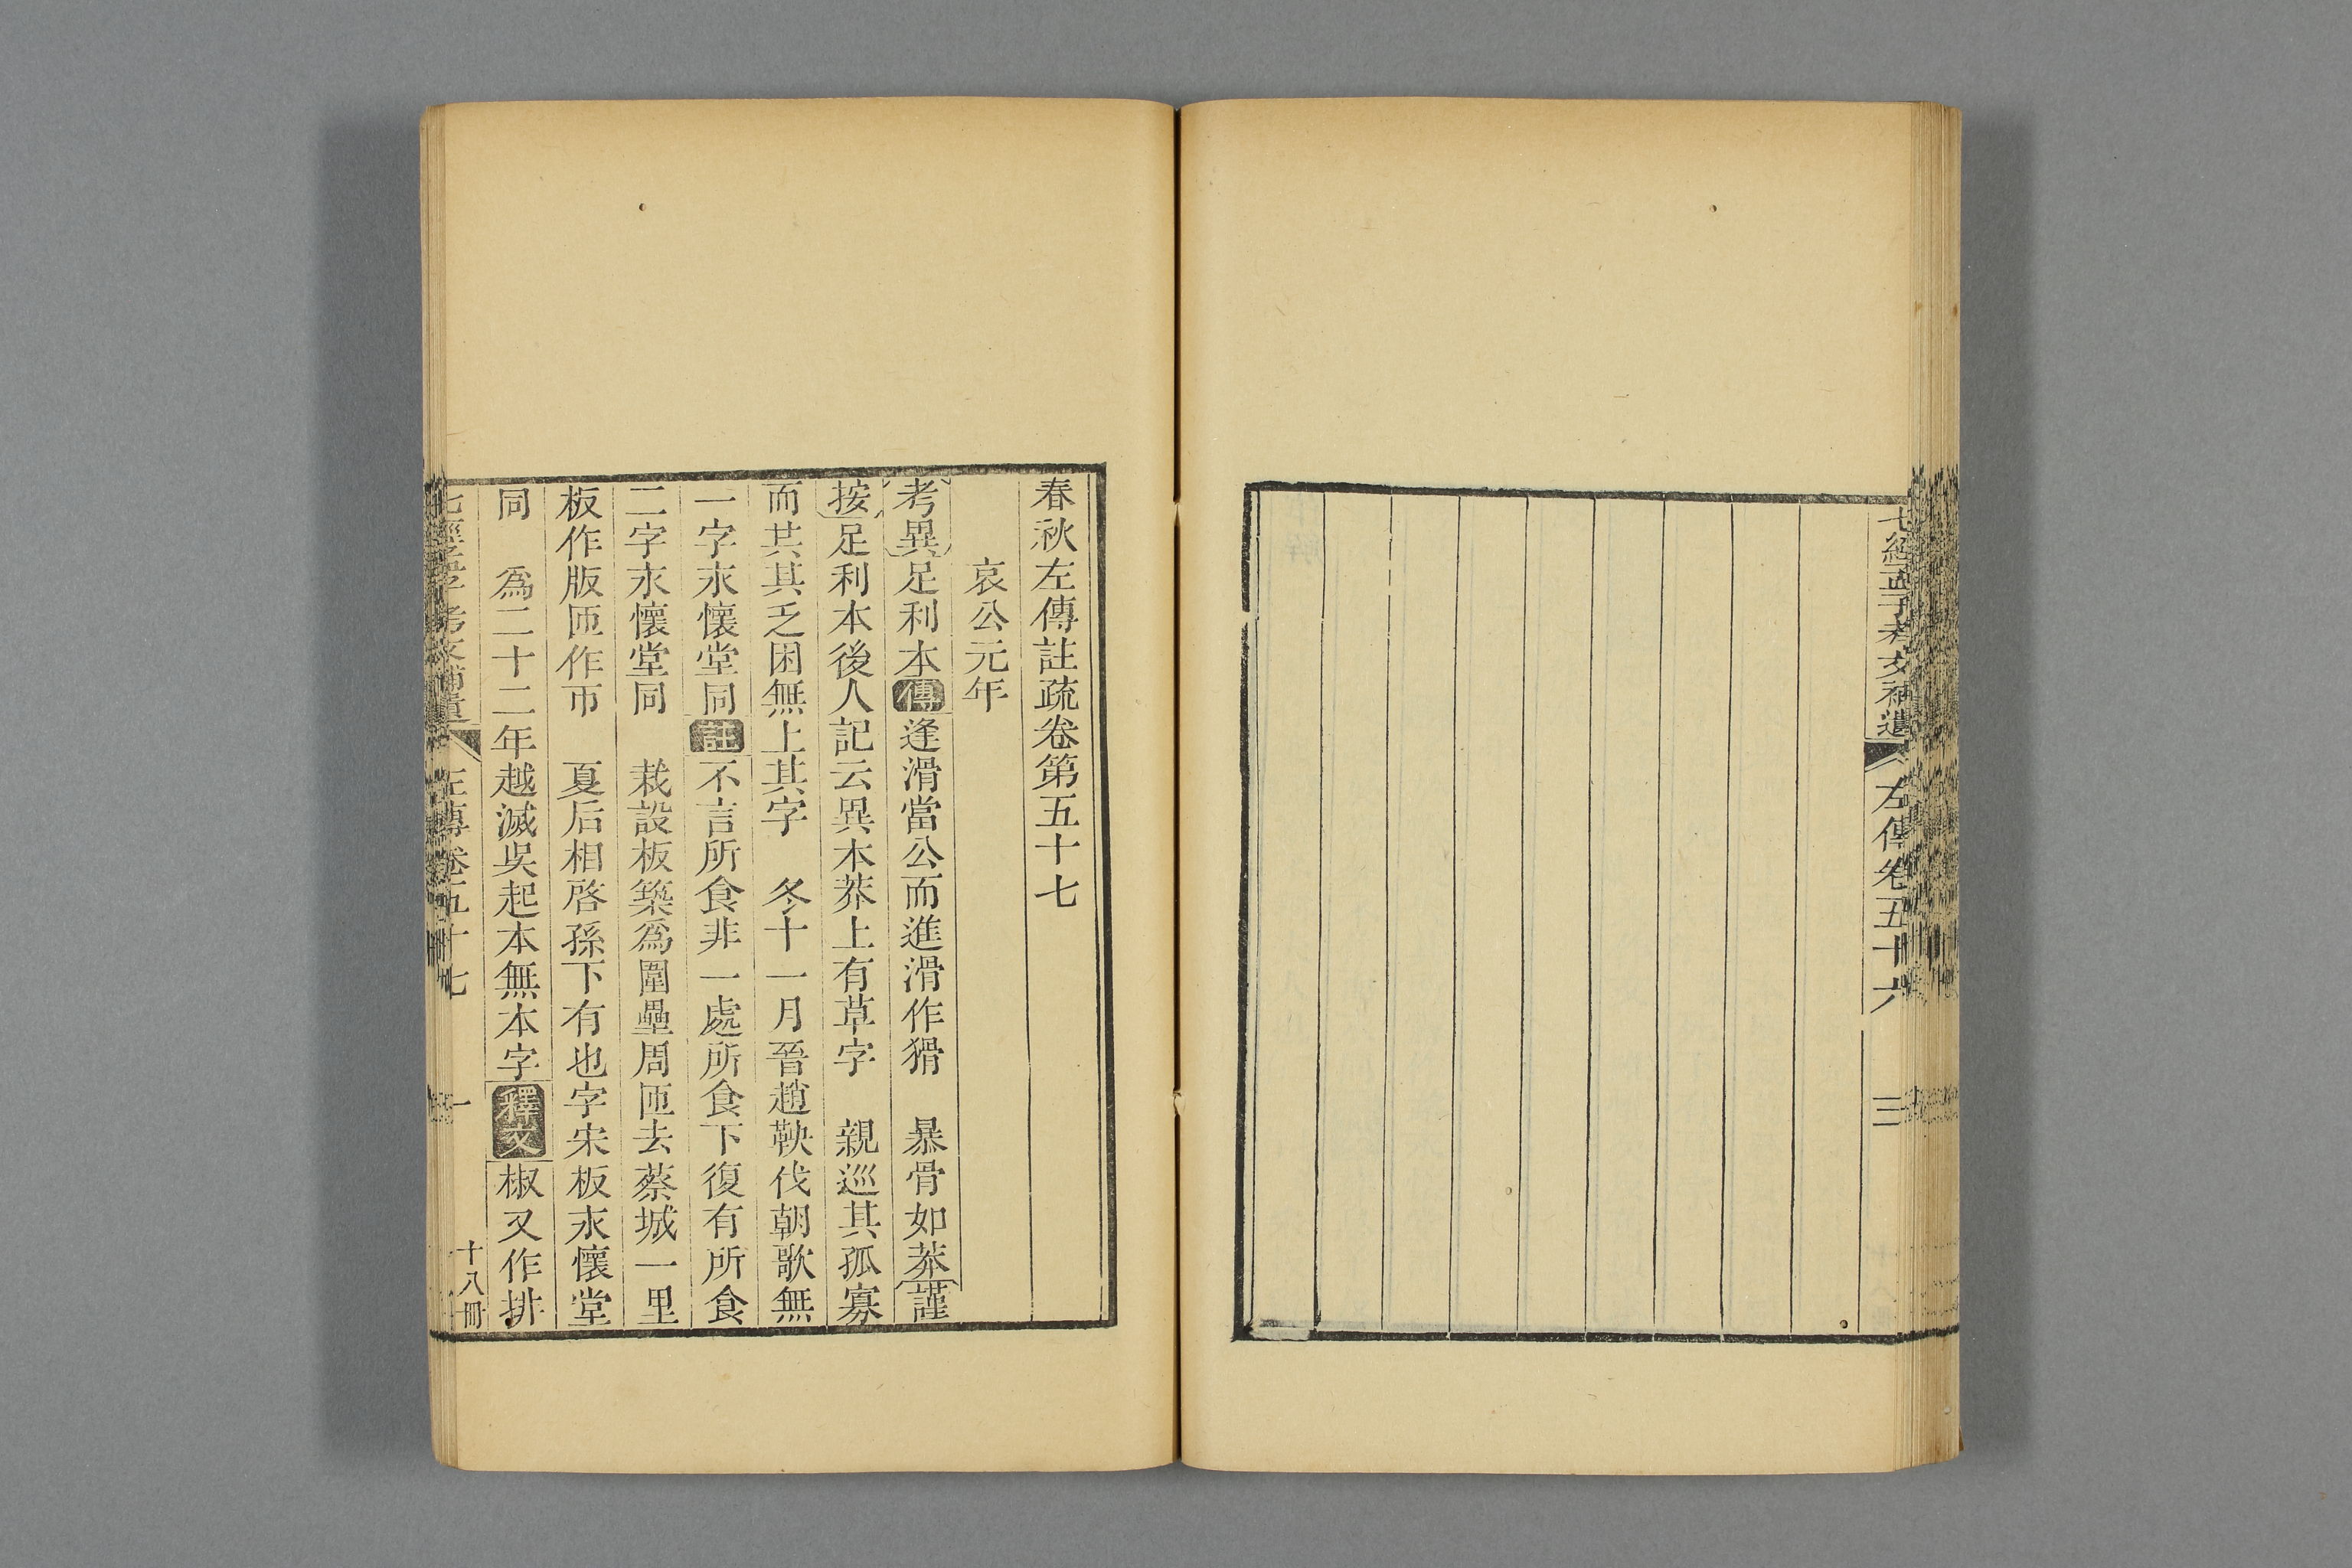 七經孟子考文補遺 左傳卷五十六 三
春秋左傳註疏卷第五十七
哀公元年
考異足利本傳逢滑當公而進滑作猾 暴骨如莽謹
按足利本後人記云異本莽上有草字 親巡其孤寡
而共其乏困無上其字 冬十一月晉趙鞅伐朝歌無
一字永懷堂同註不言所食非一處所食下復有所食
二字永懷堂同 栽設板築爲圍壘周匝去蔡城一里
板作版匝作帀 夏后相啓孫下有也字宋板永懷堂
同 爲二十二年越滅吳起本無本字釋文椒又作揪
七經孟子考文補遺 左傳卷五十七 一 十八冊